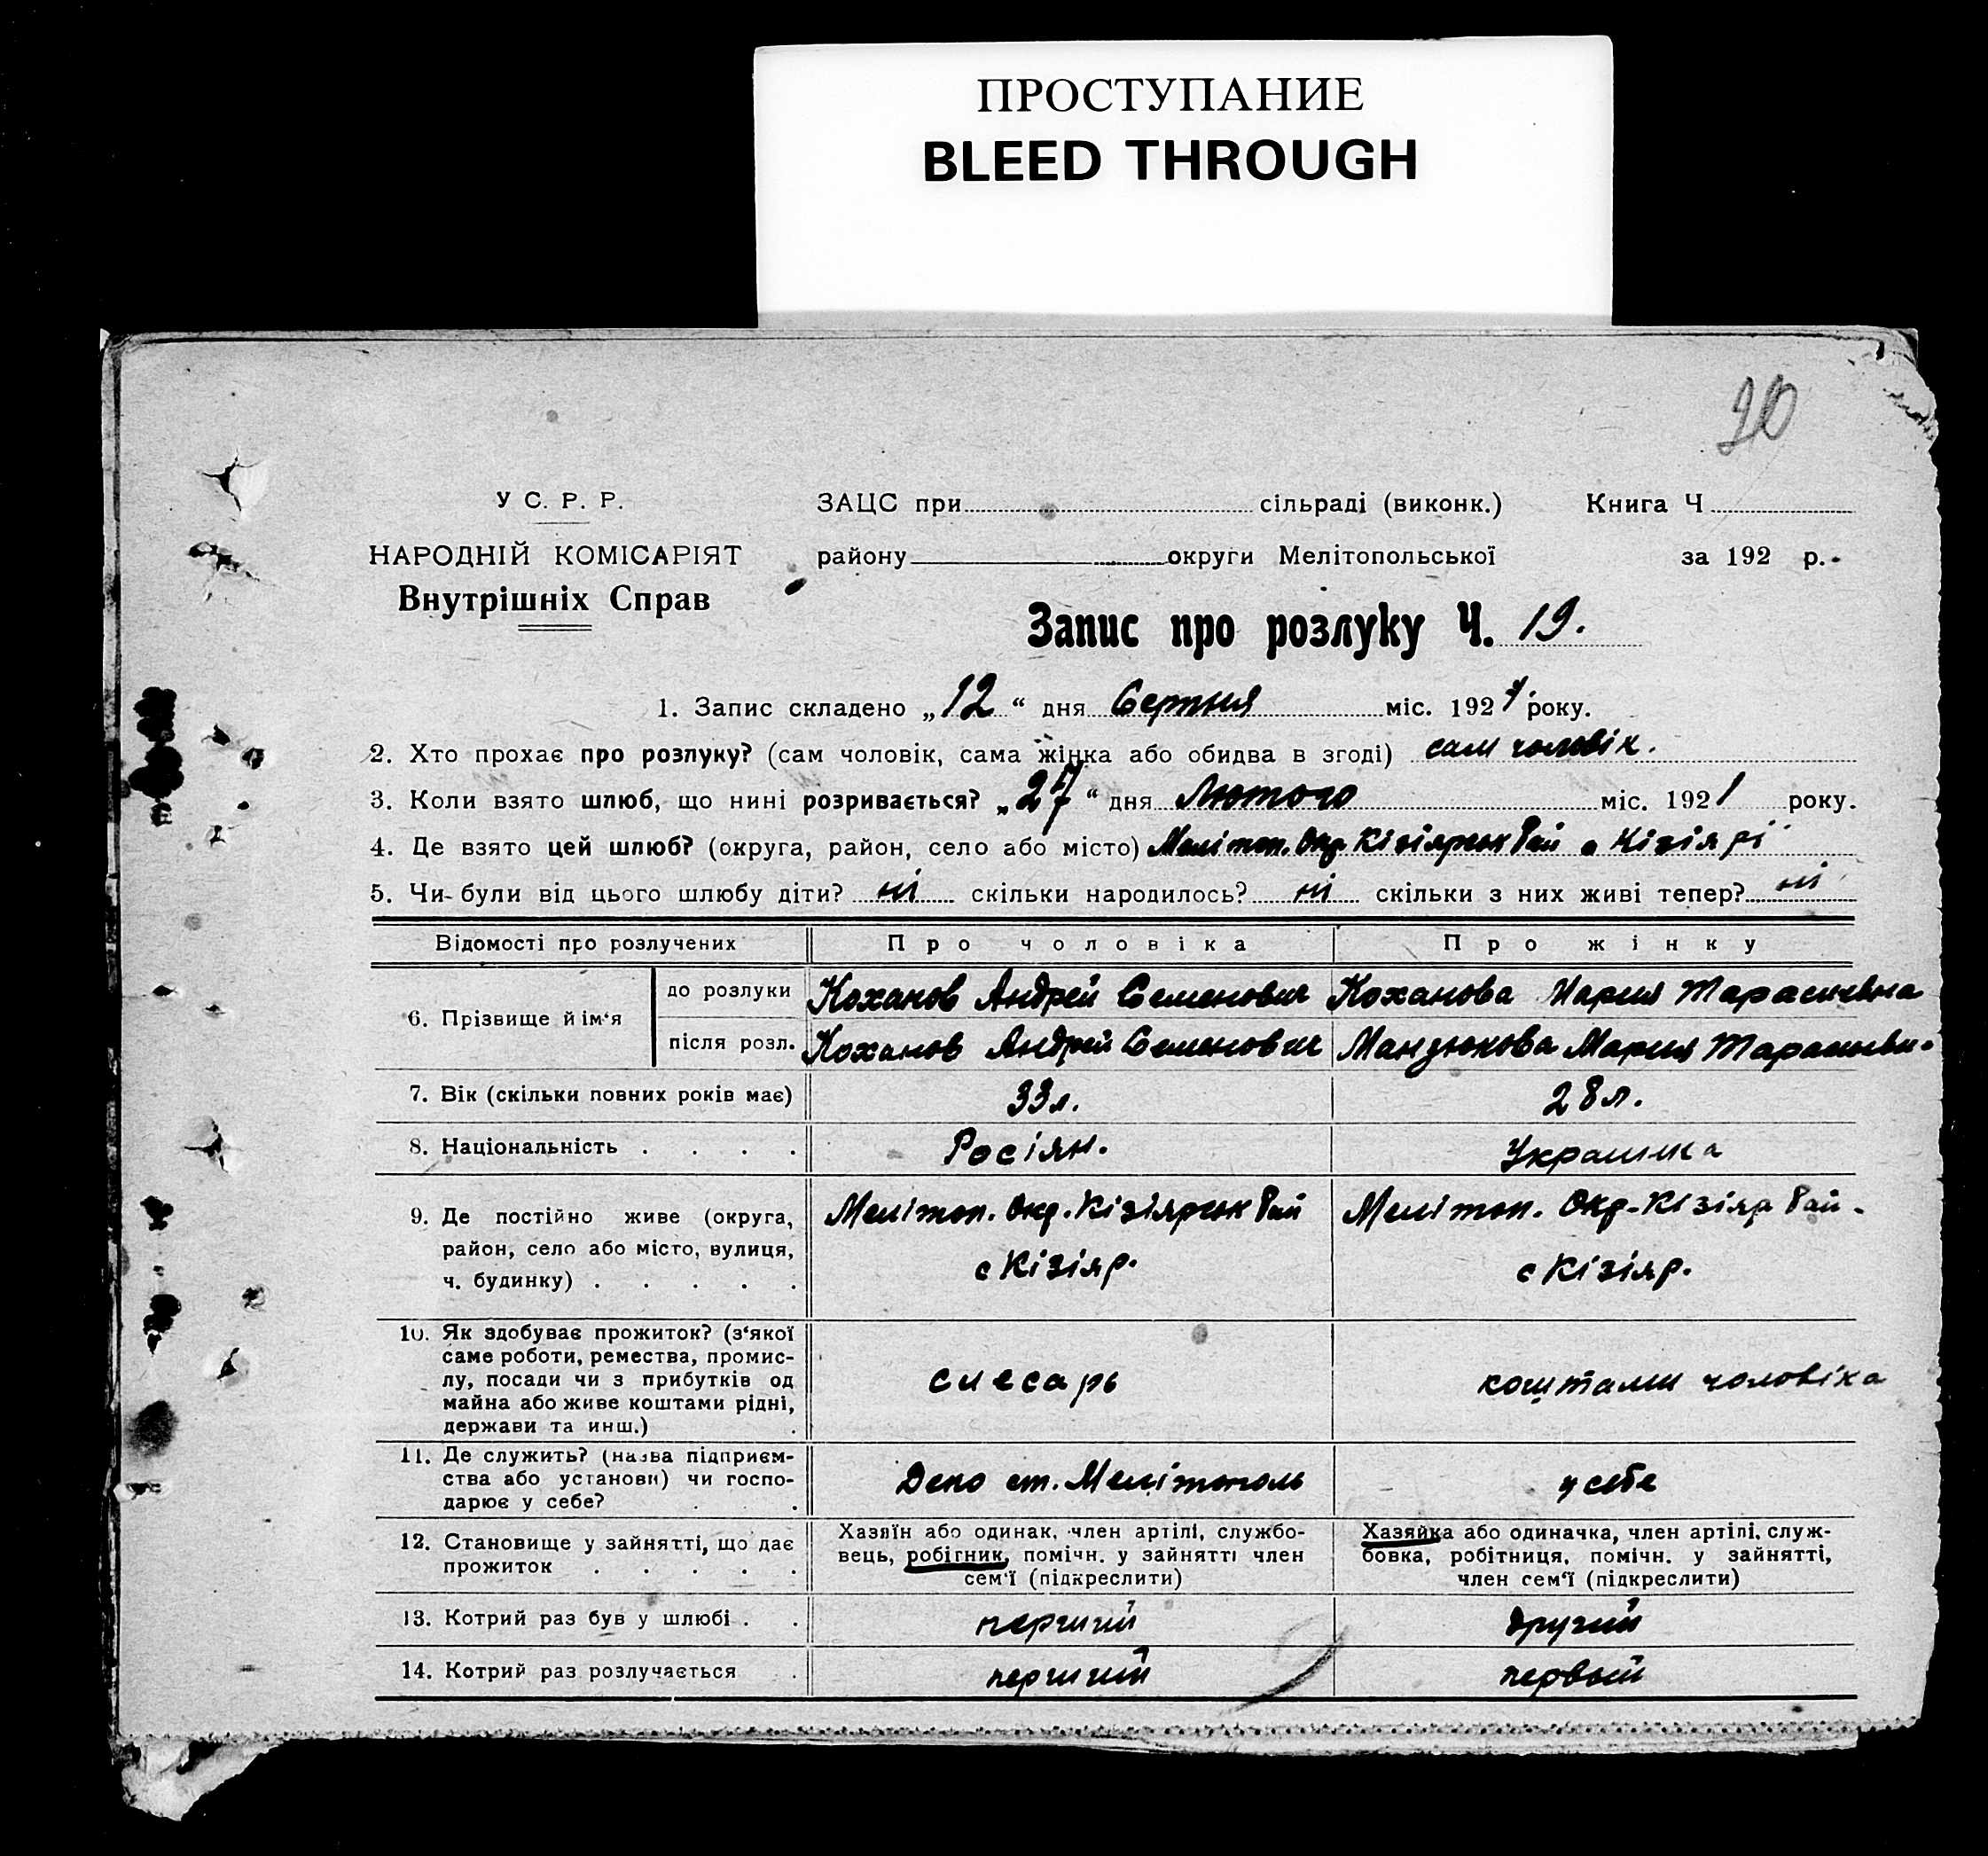 ПРОСТУПАНИЕ
BLEED THROUGH
У С. Р. Р.
НАРОДНІЙ КОМІСАРІЯТ
Внутрішніх Справ
ЗАЦС при сільраді (виконк.) Книга Ч
району округи Мелітопольської за 192 р.
Запис про розлуку Ч. 19.
1. Запис складено „12“ дня Серпня міс. 192 року.
2. Хто прохає про розлуку? (сам чоловік, сама жінка або обидва в згоді) сам чоловік.
3. Коли взято шлюб, що нині розривається? „27“ дня Лютого міс. 1921 року.
4. Де взято цей шлюб? (округа, район, село або місто) Мелітоп. Окр. Кізіярськ Рай с Кізіярі
5. Чи були від цього шлюбу діти? ні скільки народилось? ні скільки з них живі тепер? ні
Відомості про розлучених Про чоловіка Про жінку
6. Прізвище й ім‘я
до розлуки Коханов Андрей Семенович Коханова Мария Тарасиевна
після розл. Коханов Андрей Семенович Манзюкова Мария
7. Вік (скільки повних років має) 33 л. 28 л.
8. Національність . . . . Росіян. Украинка
9. Де постійно живе (округа, Мелітоп. Окр. Кізіярськ Рай Мелітоп. Окр. Кізіяр Рай-
район, село або місто, вулиця, с Кізіяр. с Кізіяр.
ч. будинку) . . . . .
10. Як здобуває прожиток? (з‘якої
саме роботи, ремества, промис-
лу, посади чи з прибутків од слесарь коштами чоловіка
майна або живе коштами рідні,
держави та инш.) .
11. Де служить? (назва підприєм-
ства або установи) чи госпо- Депо ст. Мелітополь у себе
дарює у себе? . .
12. Становище у зайнятті, що дає
прожиток . . . . .
Хазяїн або одинак, член артілі, службо-
вець, робітник, помічн. у зайнятті член
сем‘ї (підкреслити)
Хазяйка або одиначка, член артілі, служ-
бовка, робітниця, помічн. у зайнятті,
член сем‘ї (підкреслити)
13. Котрий раз був у шлюбі . . перший другий
14. Котрий раз розлучається . перший первый